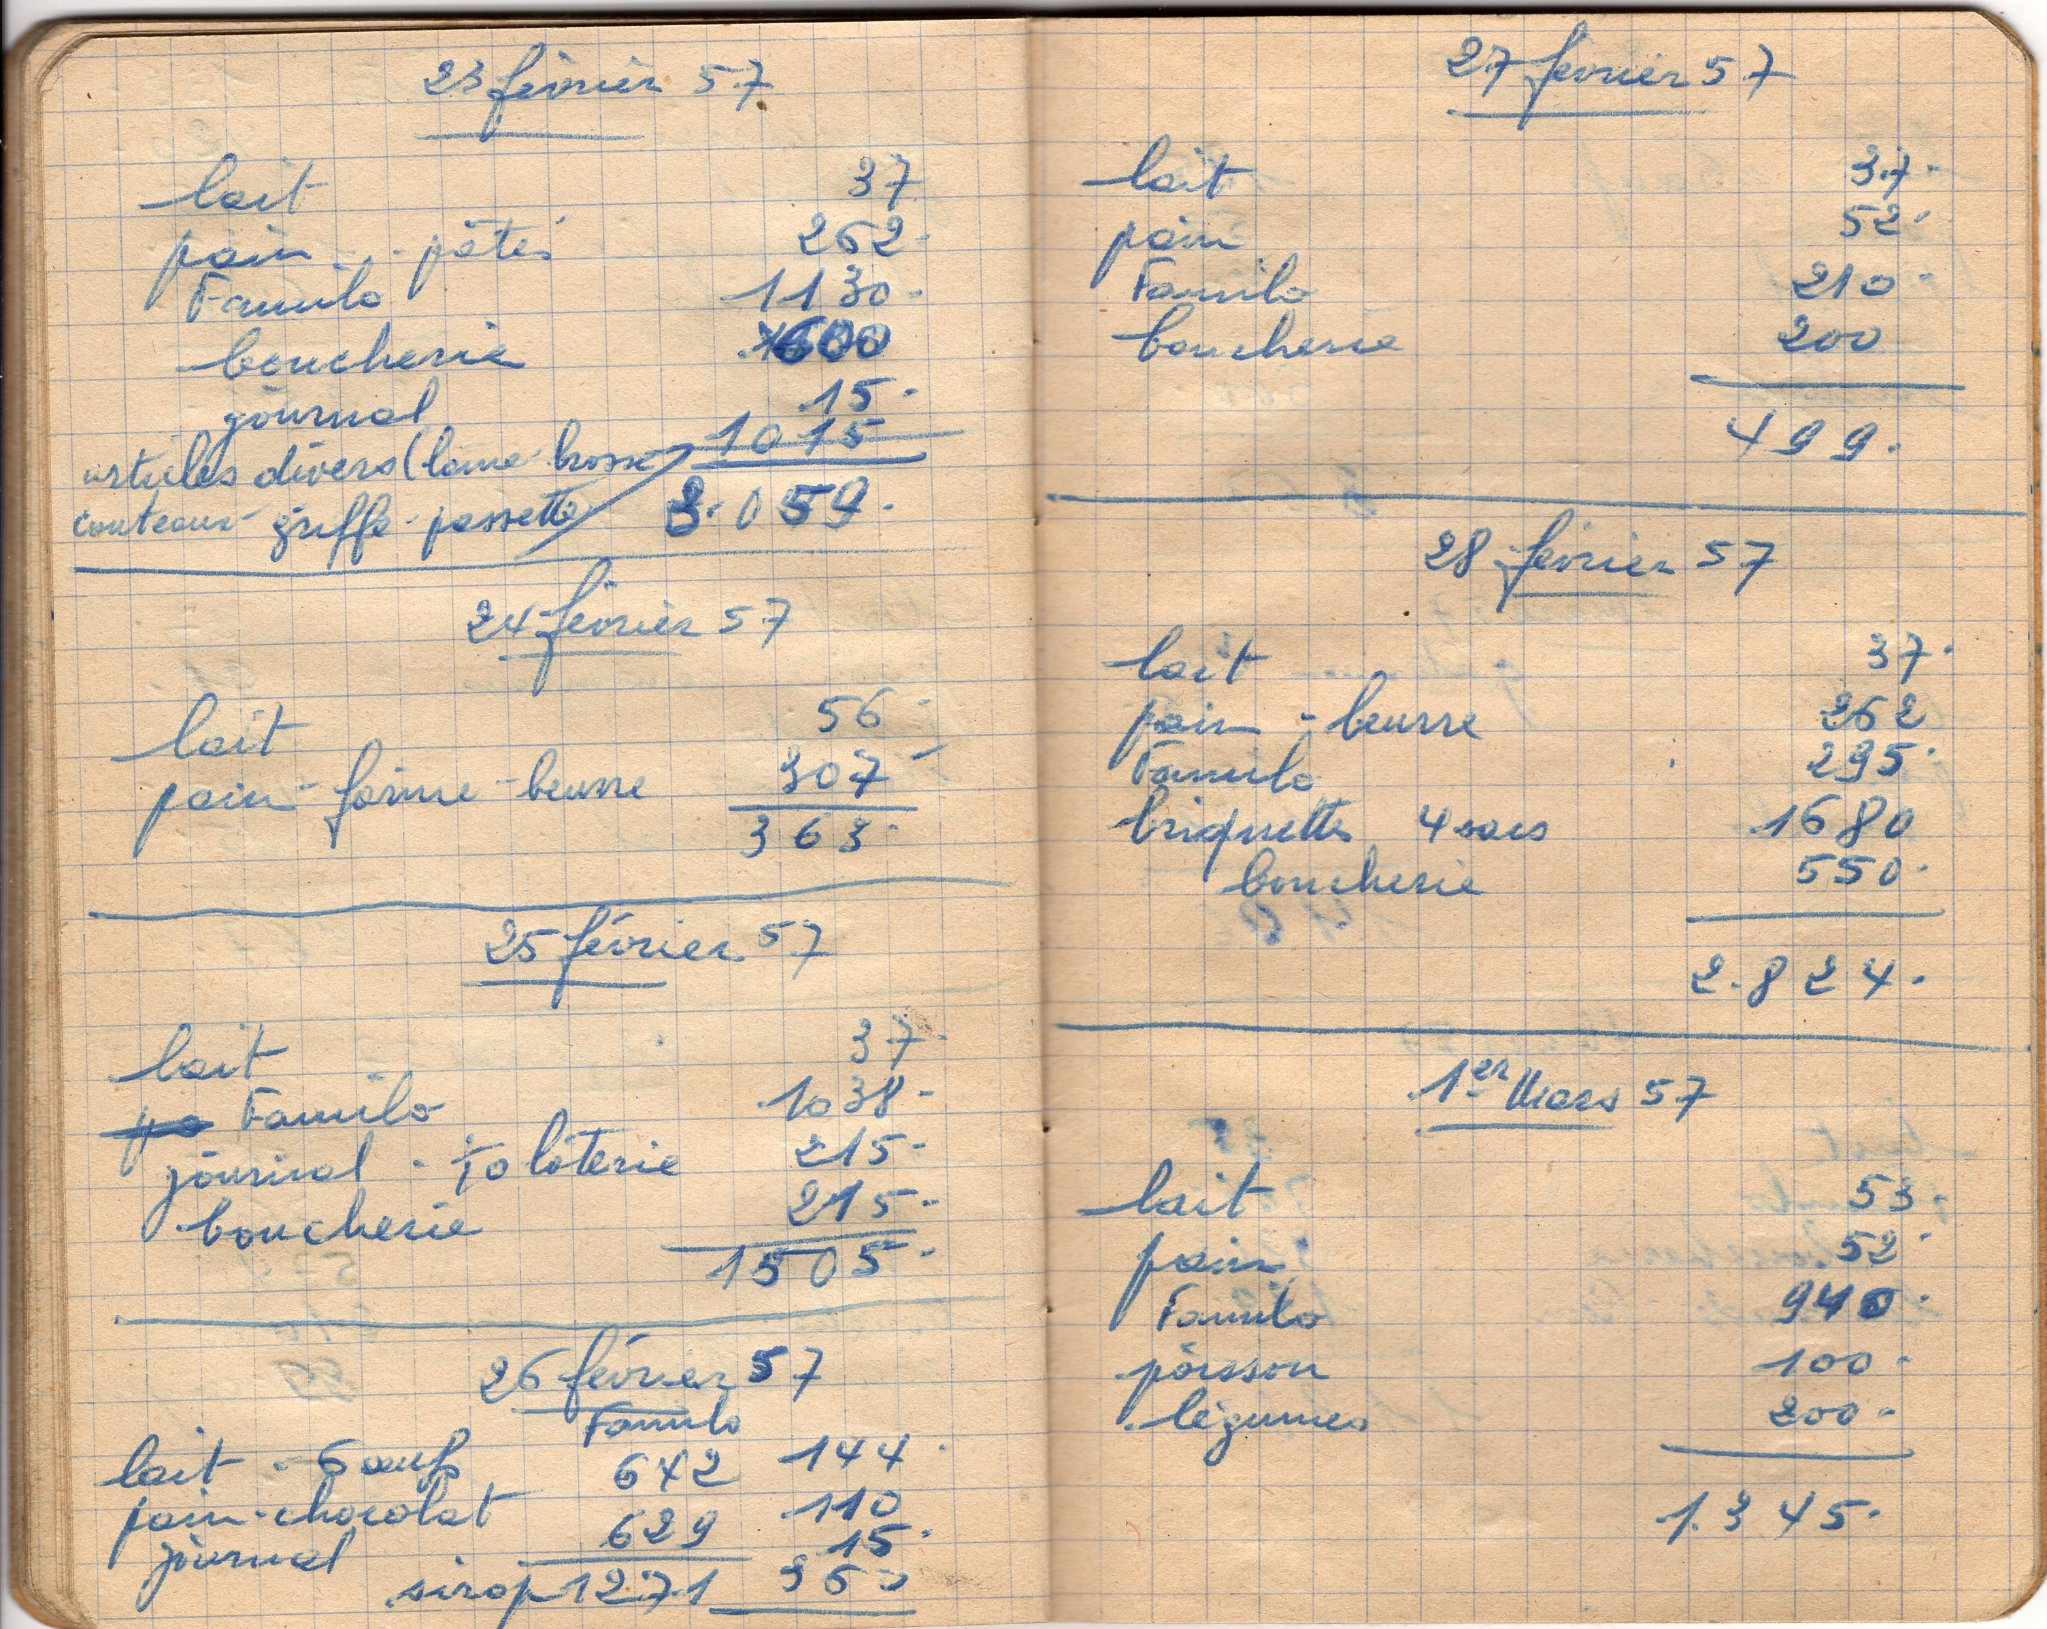 23 février 57
lait 37
pain - pâtes 262-
Familo 1130-
boucherie 600
journal 15-
articles divers (laine-brosse 1015
couteaux - griffe - passette) 3.059.
24 février 57
lait 56-
pain - farine - beurre 307-
363-
25 février 57
lait 37-
Familo 1038-
journal - loterie 215-
boucherie 215-
1505-
26 février 57
Familo
lait - 6 œufs 642 144-
pain - chocolat 629 110
journal 15-
sirop 1271
27 février 57
lait 37-
pain 52-
Familo 210-
boucherie 200
499.
28 février 57
lait 37-
pain - beurre 262
Familo 295-
briquettes 4 sacs 1680
boucherie 550-
2.824.
1er Mars 57
lait 53-
pain 52-
Familo 940-
poisson 100-
légumes 200-
1.345.